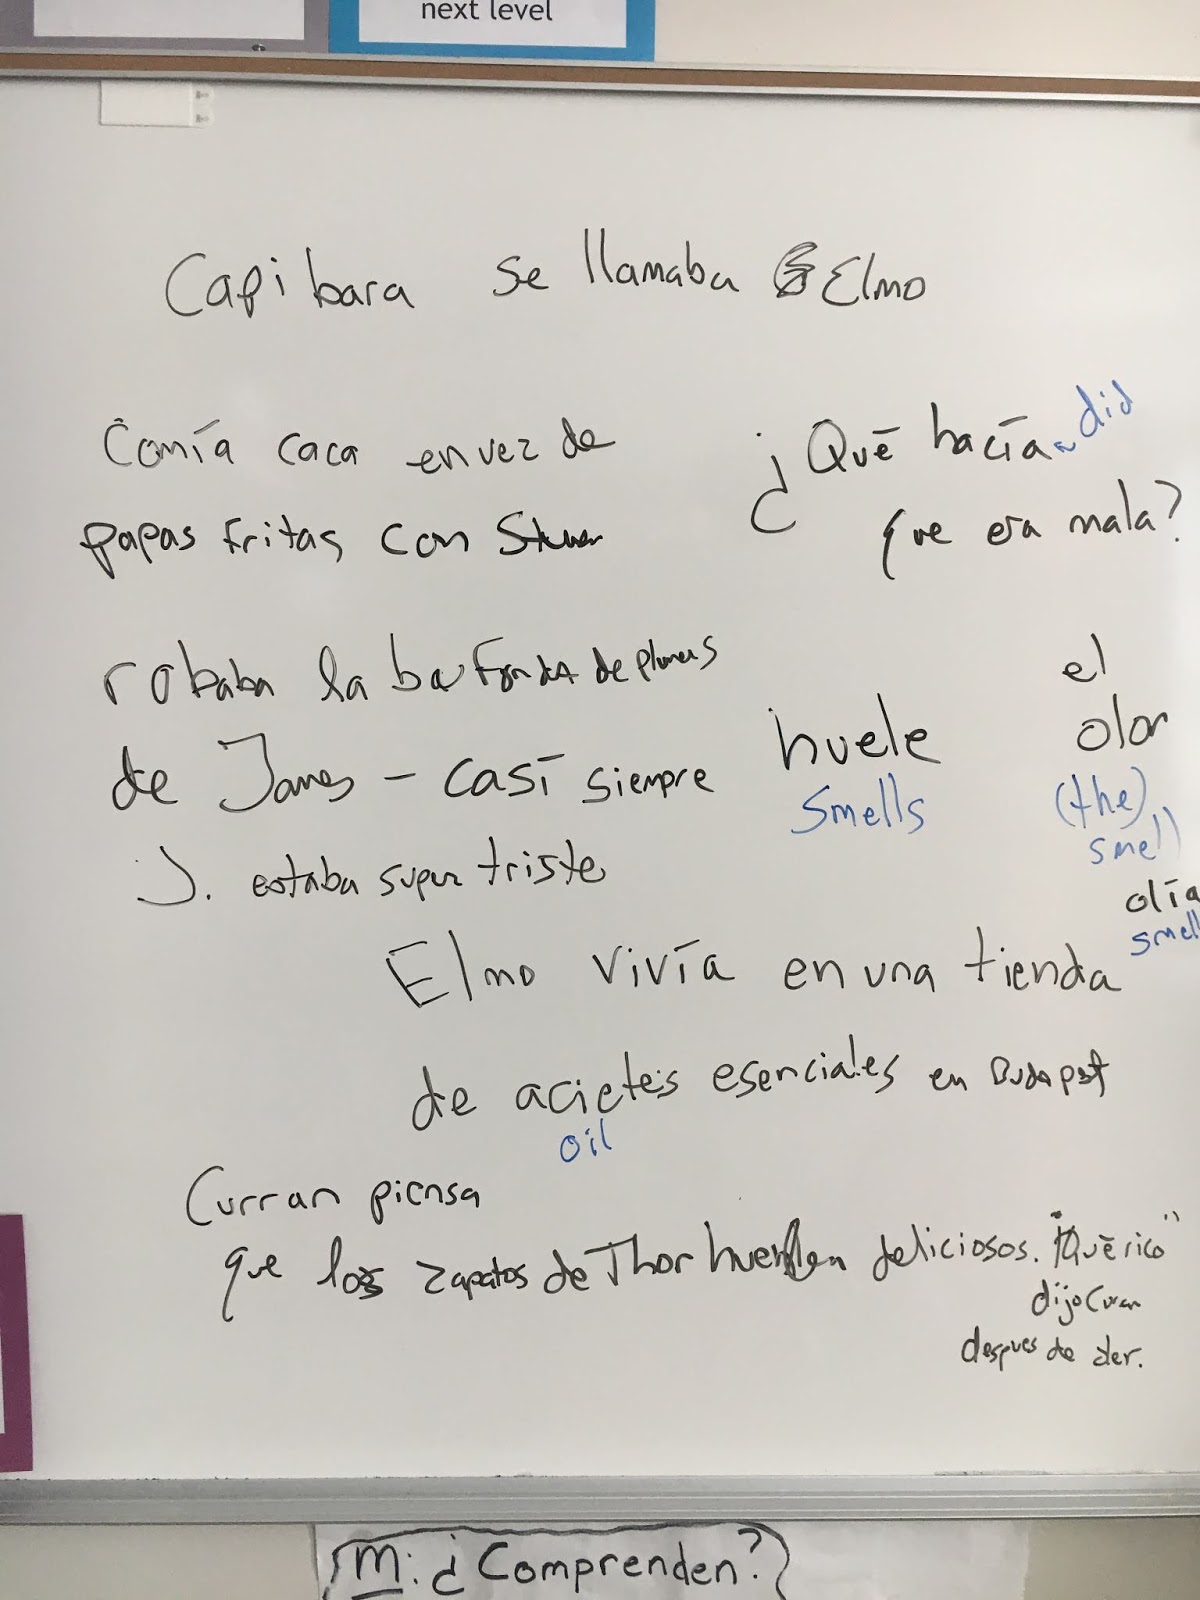 next level
Capibara se llamaba Elmo
Comía caca en vez de
papas fritas con
¿Qué hacía did
que era mala?
robaba la bufonda de plumas
de James - casí siempre
J. estaba super triste
huele
smells
el
olor
(the)
smell
olía
smell
Elmo vivía en una tienda
de acietes esenciales en Budapest
oil
Curran piensa
que los zapatos de Thor huelen deliciosos. "Qué rico"
dijo Curran
despues de
M: ¿Comprenden?